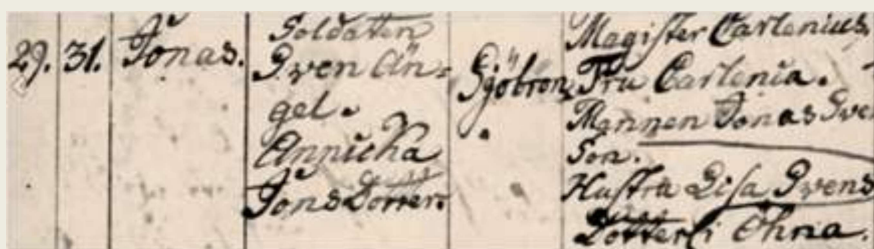 29. 31. Jonas.
Soldaten
Swen Än=
gel.
Annicka
Jons Dotter.
Sjöbron
Magister Carlenius,
Fru Carlenia.
Mannen Jonas Swen
Son.
Hustru Lisa Swens
Dotter i Öhna.